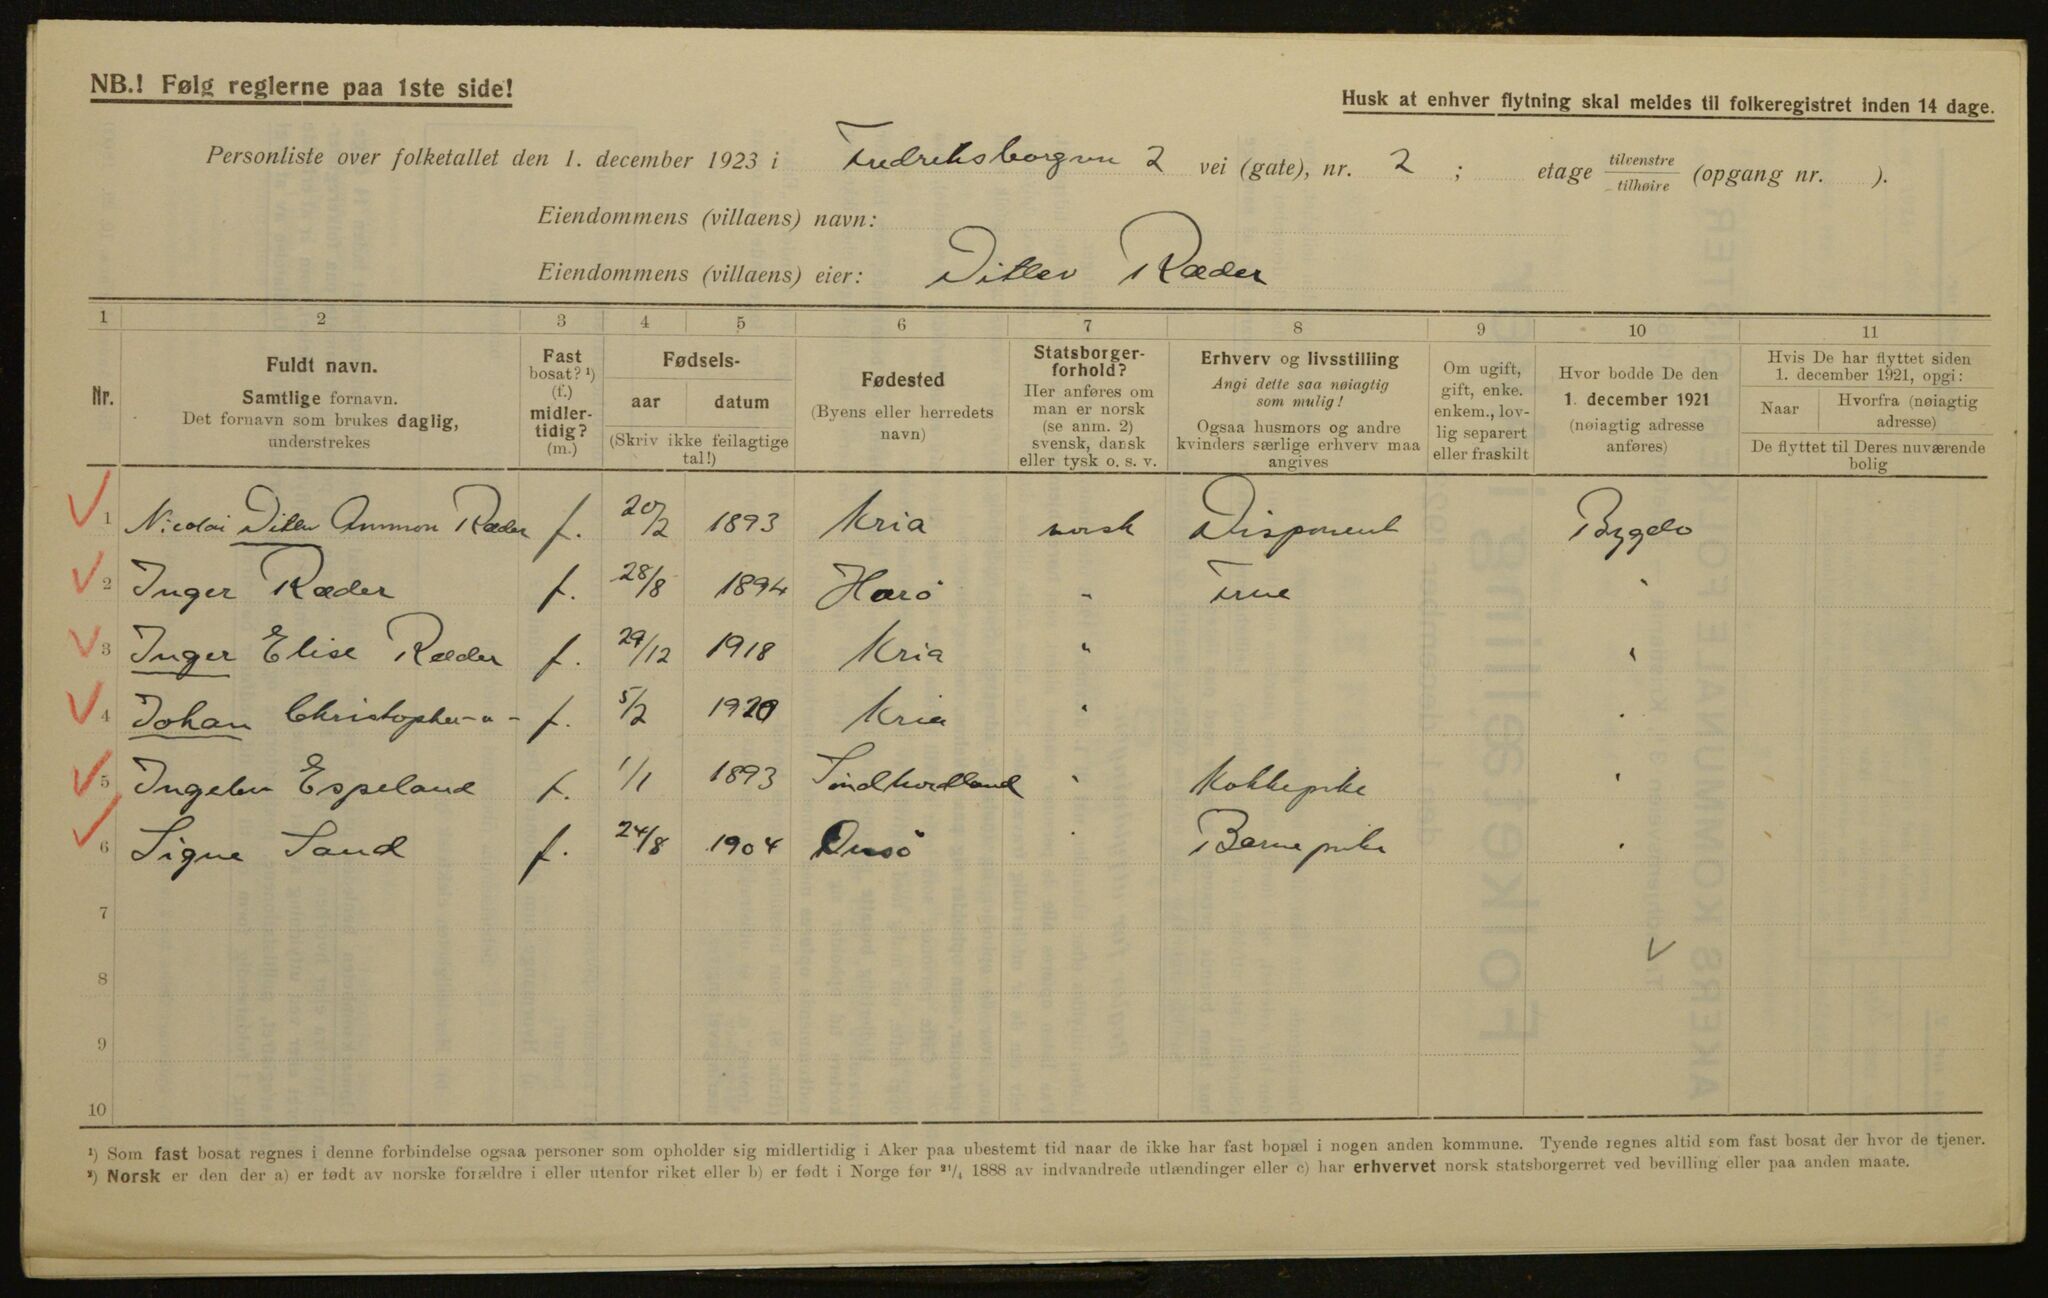 NB.! Følg reglerne paa 1ste side!
Husk at enhver flytning skal meldes til folkeregistret inden 14 dage.
Personliste over folketallet den 1. december 1923 i Fredriksborgvn 2 vei (gate), nr. 2 ; etage tilvenstre / tilhøire (opgang nr. ).
Eiendommens (villaens) navn:
Eiendommens (villaens) eier: Ditlev Ræder
1 2 3 4 5 6 7 8 9 10 11
Nr. Fuldt navn. Samtlige fornavn. Det fornavn som brukes daglig, understrekes
Fast bosat? ¹) (f.) midlertidig? (m.)
Fødsels- aar datum (Skriv ikke feilagtige tal!)
Fødested (Byens eller herredets navn)
Statsborgerforhold? Her anføres om man er norsk (se anm. 2) svensk, dansk eller tysk o. s. v.
Erhverv og livsstilling Angi dette saa nøiagtig som mulig! Ogsaa husmors og andre kvinders særlige erhverv maa angives
Om ugift, gift, enke. enkem., lovlig separert eller fraskilt
Hvor bodde De den 1. december 1921 (nøiagtig adresse anføres)
Hvis De har flyttet siden 1. december 1921, opgi: Naar Hvorfra (nøiagtig adresse) De flyttet til Deres nuværende bolig
1 Nicolai Ditlev Ammon Ræder f. 20/2 1893 Kria norsk Disponent Bygdø
2 Inger Ræder f. 28/8 1894 Harö " Frue "
3 Inger Elise Ræder f. 29/12 1918 Kria " "
4 Johan Christopher -"- f. 5/2 1920 Kria " "
5 Espeland f. 1/1 1893 Söndhordland " Kokkepike "
6 Signe Sand f. 24/8 1904 Onsö " Barnepike "
7
8
9
10
¹) Som fast bosat regnes i denne forbindelse ogsaa personer som opholder sig midlertidig i Aker paa ubestemt tid naar de ikke har fast bopæl i nogen anden kommune. Tyende regnes altid som fast bosat der hvor de tjener.
²) Norsk er den der a) er født av norske forældre i eller utenfor riket eller b) er født i Norge før ²¹/₄ 1888 av indvandrede utlændinger eller c) har erhvervet norsk statsborgerret ved bevilling eller paa anden maate.